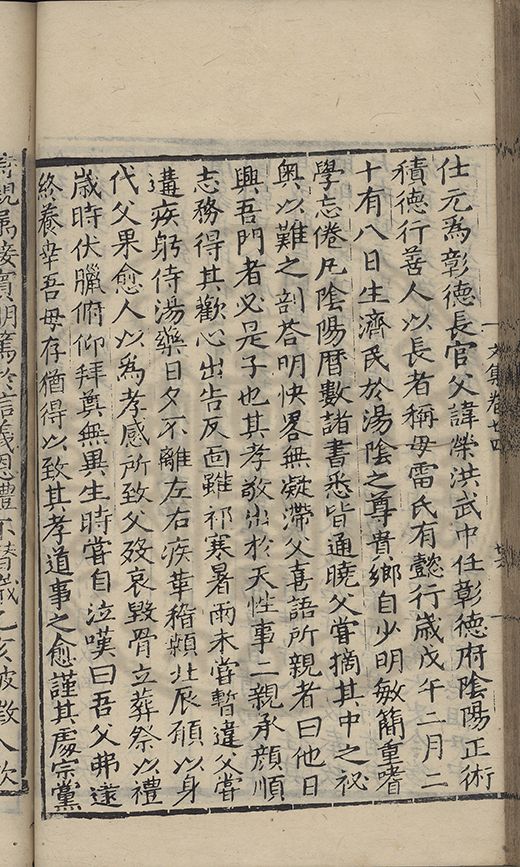 仕元為彰德長官父諱榮洪武中任彰德府陰陽正術
積德行善人以長者稱母雷氏有懿行歲戊午二月二
十有八日生濟民於湯陰之尊貴鄉自少明敏簡重嗜
學忘倦凡陰陽曆數諸書悉皆通曉父甞摘其中之祕
奧以難之剖荅明快畧無凝滯父喜語所親者曰他日
興吾門者必是子也其孝敬出於天性事二親承顔順
志務得其歡心出告反面雖祁寒暑雨未甞暫違父甞
遘疾躬侍湯藥日夕不離左右疾革稽顙北辰碩以身
代父果愈人以為孝感所致父歿哀毀骨立葬祭以禮
歲時伏臘俯仰拜奠無異生時甞自泣嘆曰吾父弗逮
終養幸吾母存猶得以致其孝道事之愈謹其處宗黨
親属接賓朋篤於信義恩禮不替歲乙亥被徵入欽
文集卷廿四